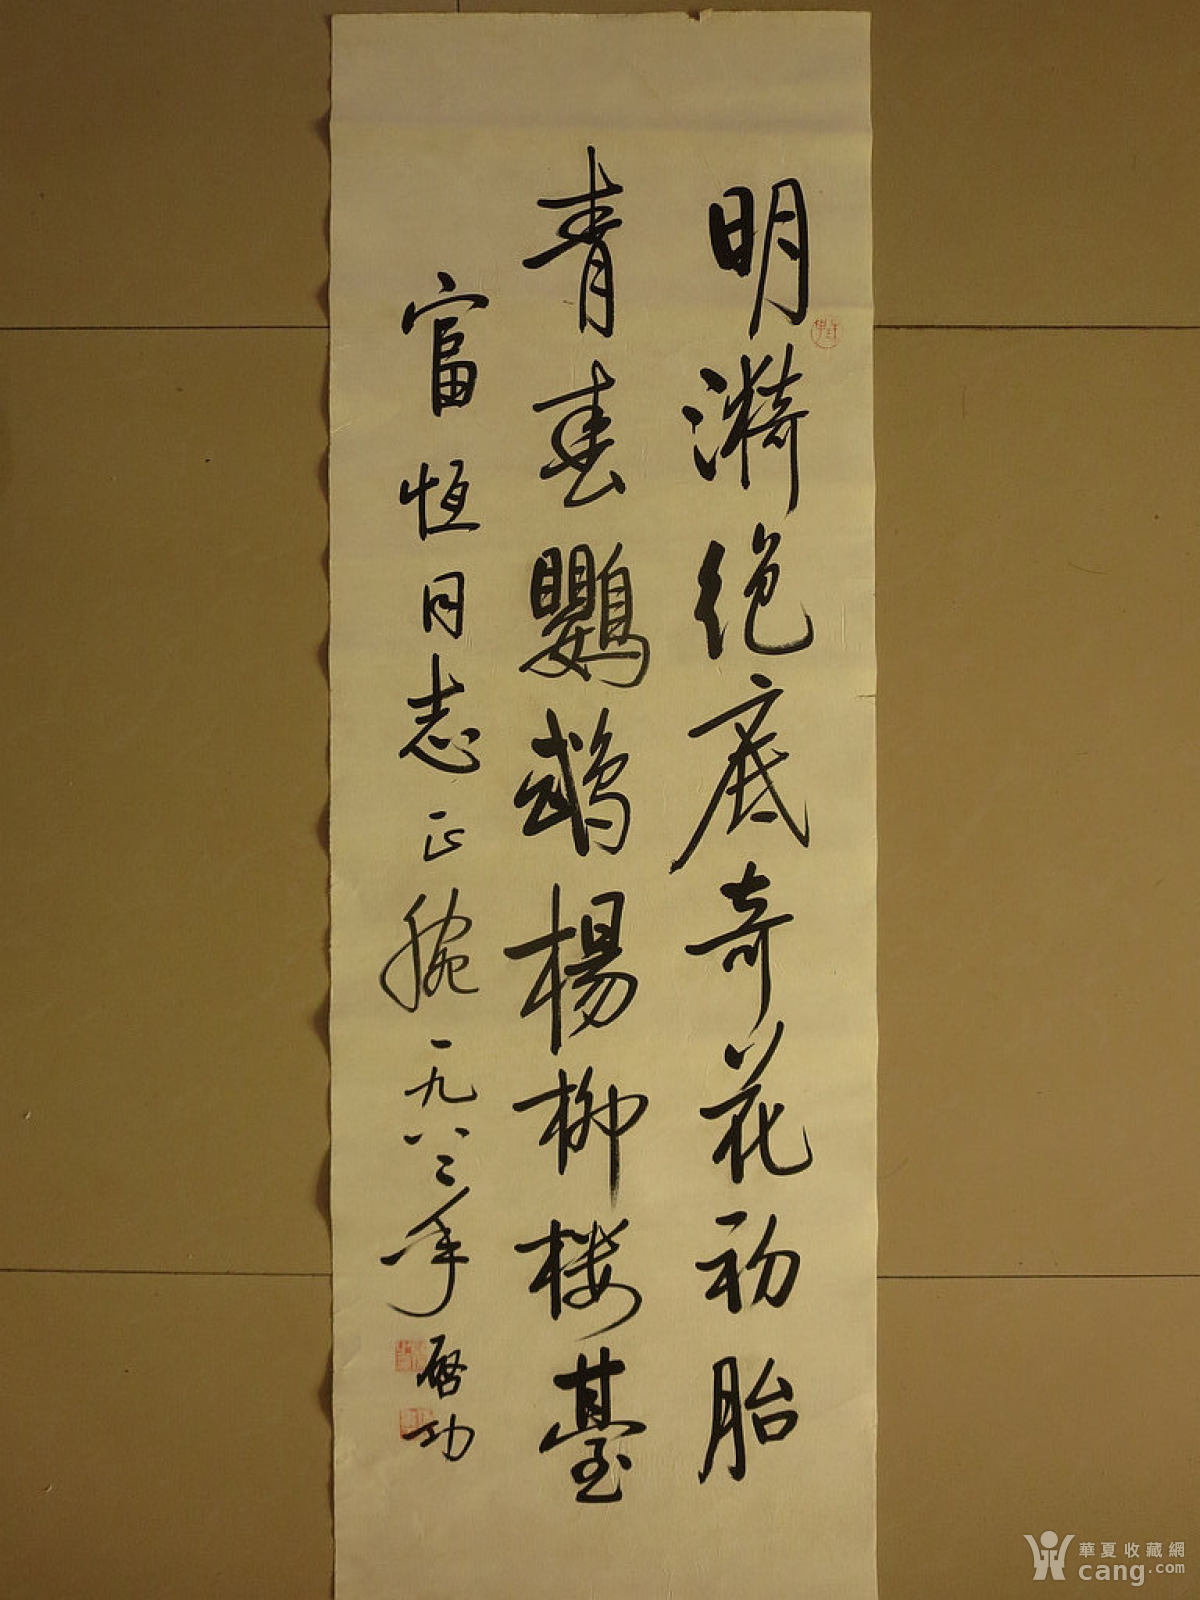 明漪絶底奇花初胎
青春鸚鵡楊柳楼臺
富恒同志正腕一九八二年啓功
華夏收藏網
cang.com